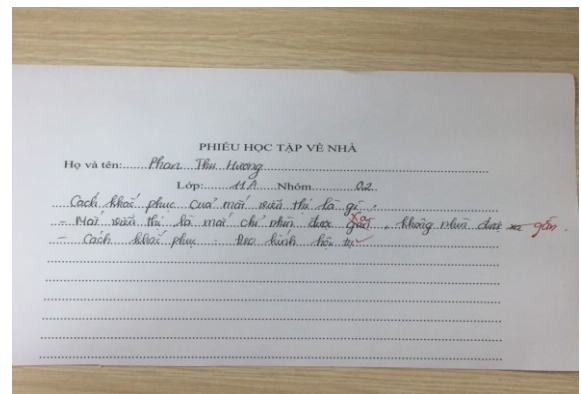 PHIẾU HỌC TẬP VỀ NHÀ
Họ và tên: Phan Thu Hương
Lớp: 11A Nhóm 02
Cách khắc phục của mắt viễn thị là gì.
- Mắt viễn thị là mắt chỉ nhìn được gần xa, không nhìn được xa gần.
- Cách khắc phục: Đeo kính hội tụ